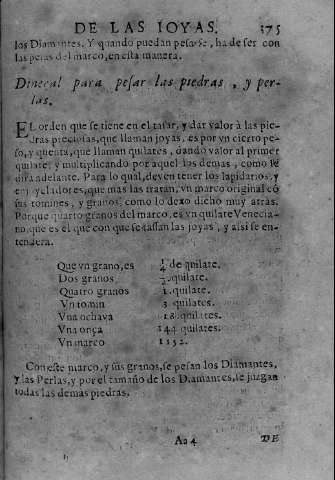 DE LAS IOYAS. 375
los Diamantes. Y quando puedan pesarse, ha de ser con
las pesas del marco, en esta manera.
Dineral para pesar las piedras, y per-
las.
EL orden que se tiene en el tasar, y dar valor à las pie-
dras preciosas, que llaman joyas, es por vn cierto pe-
so, y quenta, que llaman quilates, dando valor al primer
quilate, y multiplicando por aquel los demas, como se
dirà adelante. Para lo qual, deven tener los lapidarios, y
que mas las tratan, vn marco original cō
sus tomines, y granos, como lo dexo dicho muy atras.
Porque quatro granos del marco, es vn quilate Venecia-
no, que es el que con que se tassan las joyas, y assi se en-
tenderà.
Que vn grano, es 1/4 de quilate.
Dos granos 1/2. quilate.
Quatro granos 1. quilate.
Vn tomin 3. quilates.
Vna ochava 18. quilates.
Vna onça 144 quilates.
Vn marco 1152.
Con este marco, y sus granos, se pesan los Diamantes,
y las Perlas, y por el tamaño de los Diamantes, se juzgan
todas las demas piedras.
Aa 4 DE